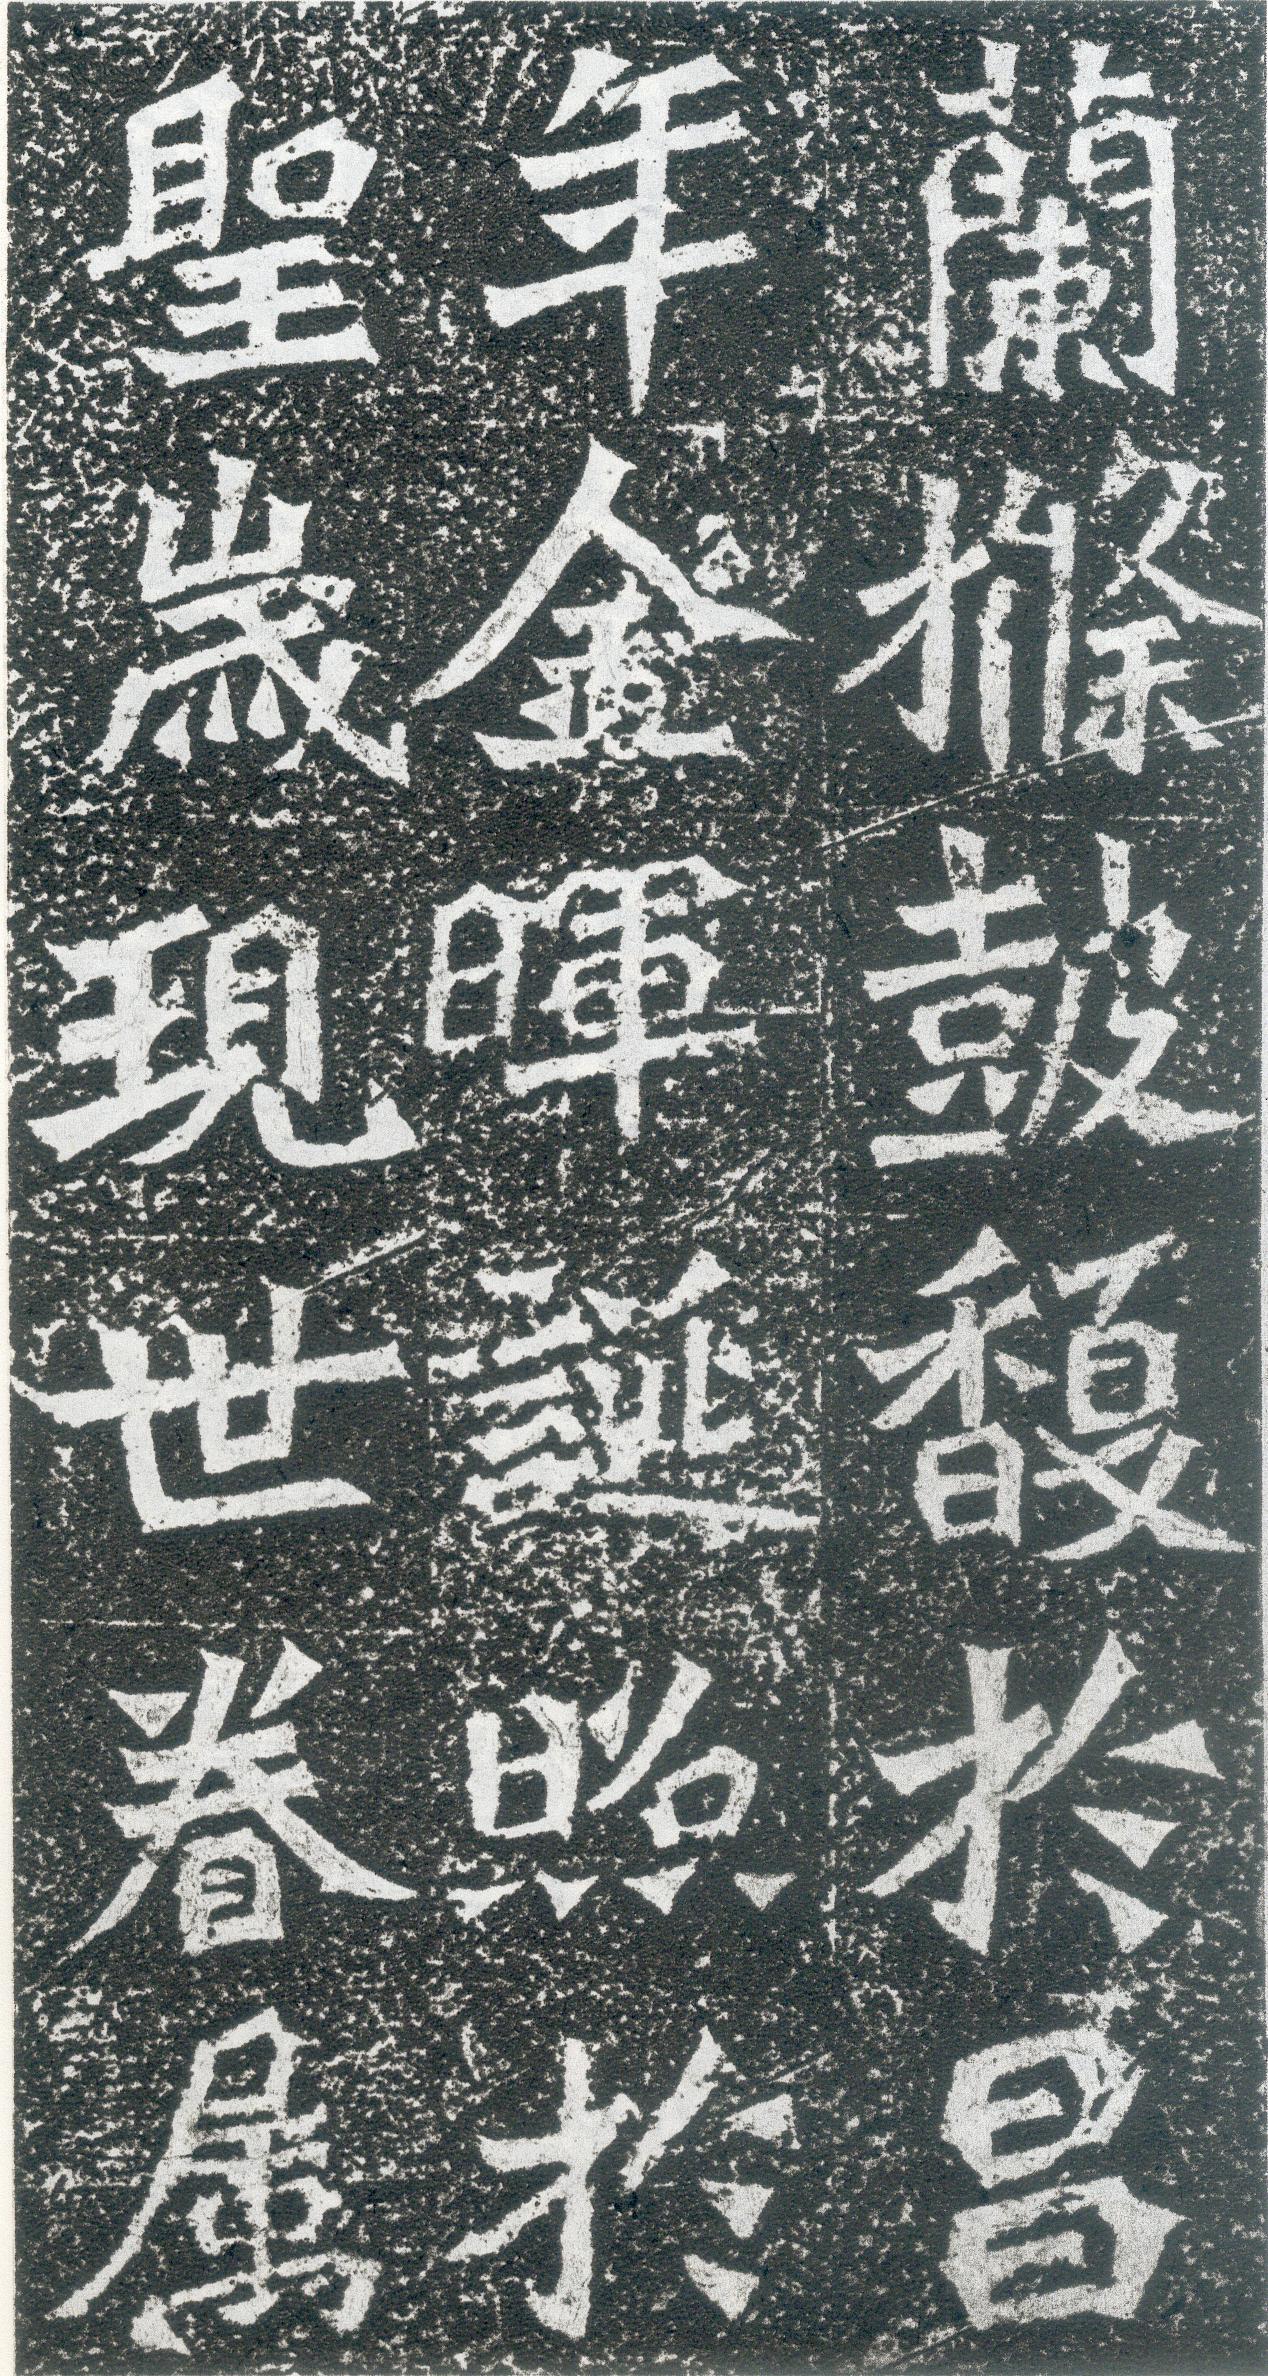 蘭條鼓馥扵昌
年金暉誕照扵
聖歲現世眷屬